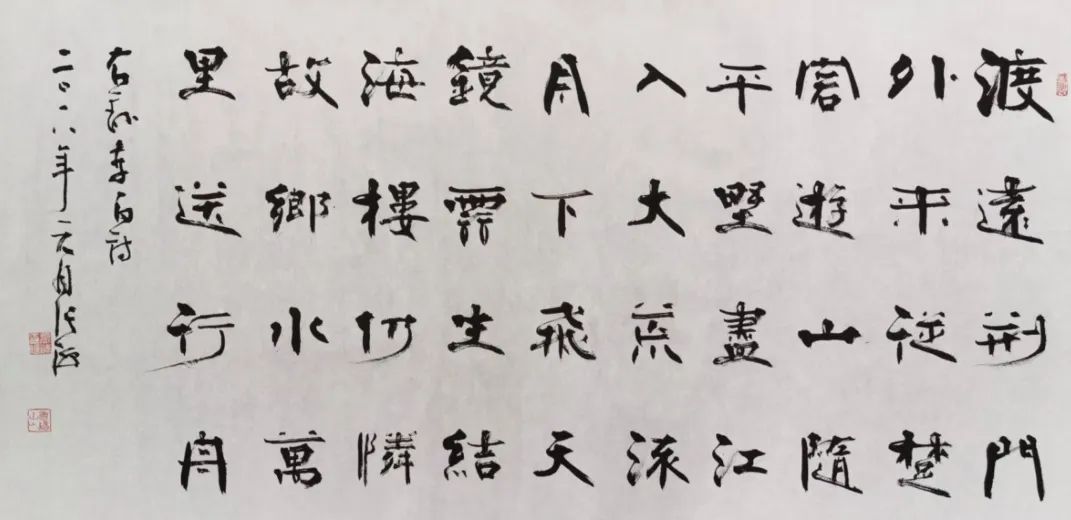 渡遠荆門
外來從楚
國遊山隨
平墅盡江
入大荒流
月下飛天
鏡雲生結
海樓仍憐
故鄉水萬
里送行舟
右録李白詩
二〇一八年元月張海